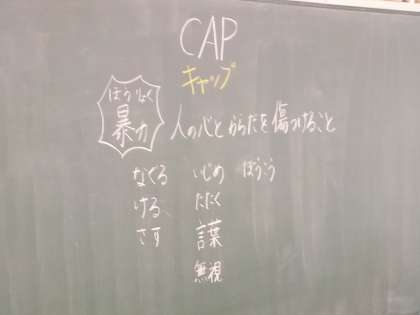 CAP
キャップ
ぼうりょく
暴力 人の心とからだを傷つけること
なくる いじめ ぼうこう
ける、 たたく
さす 言葉
無視